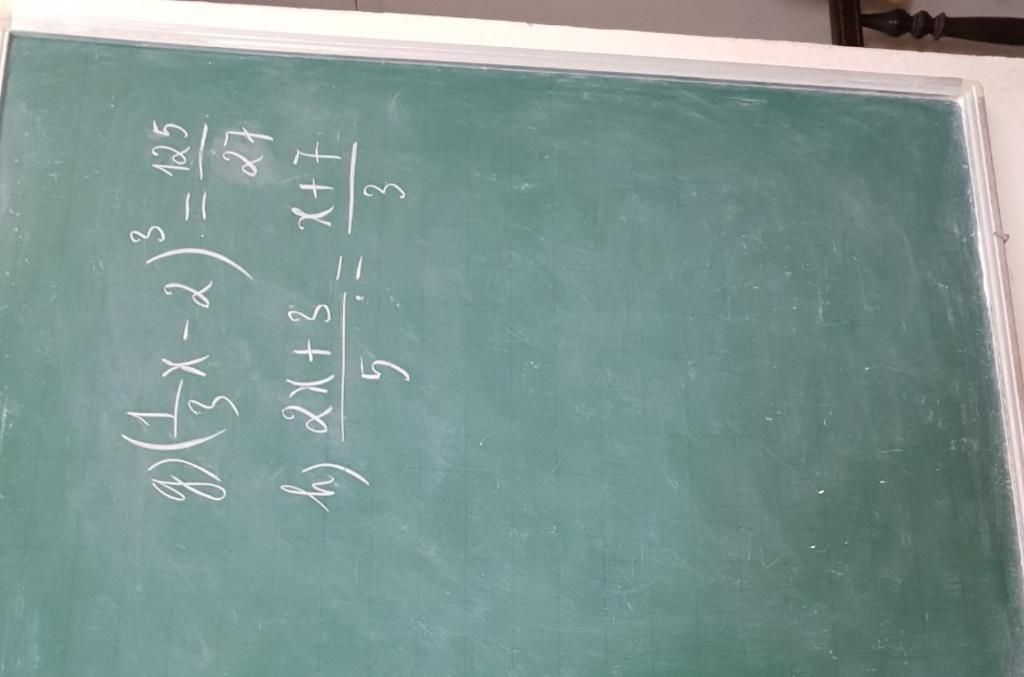 g) (1/3 x - 2)³ = 125/27
h) 2x + 3/5 = x + 7/3